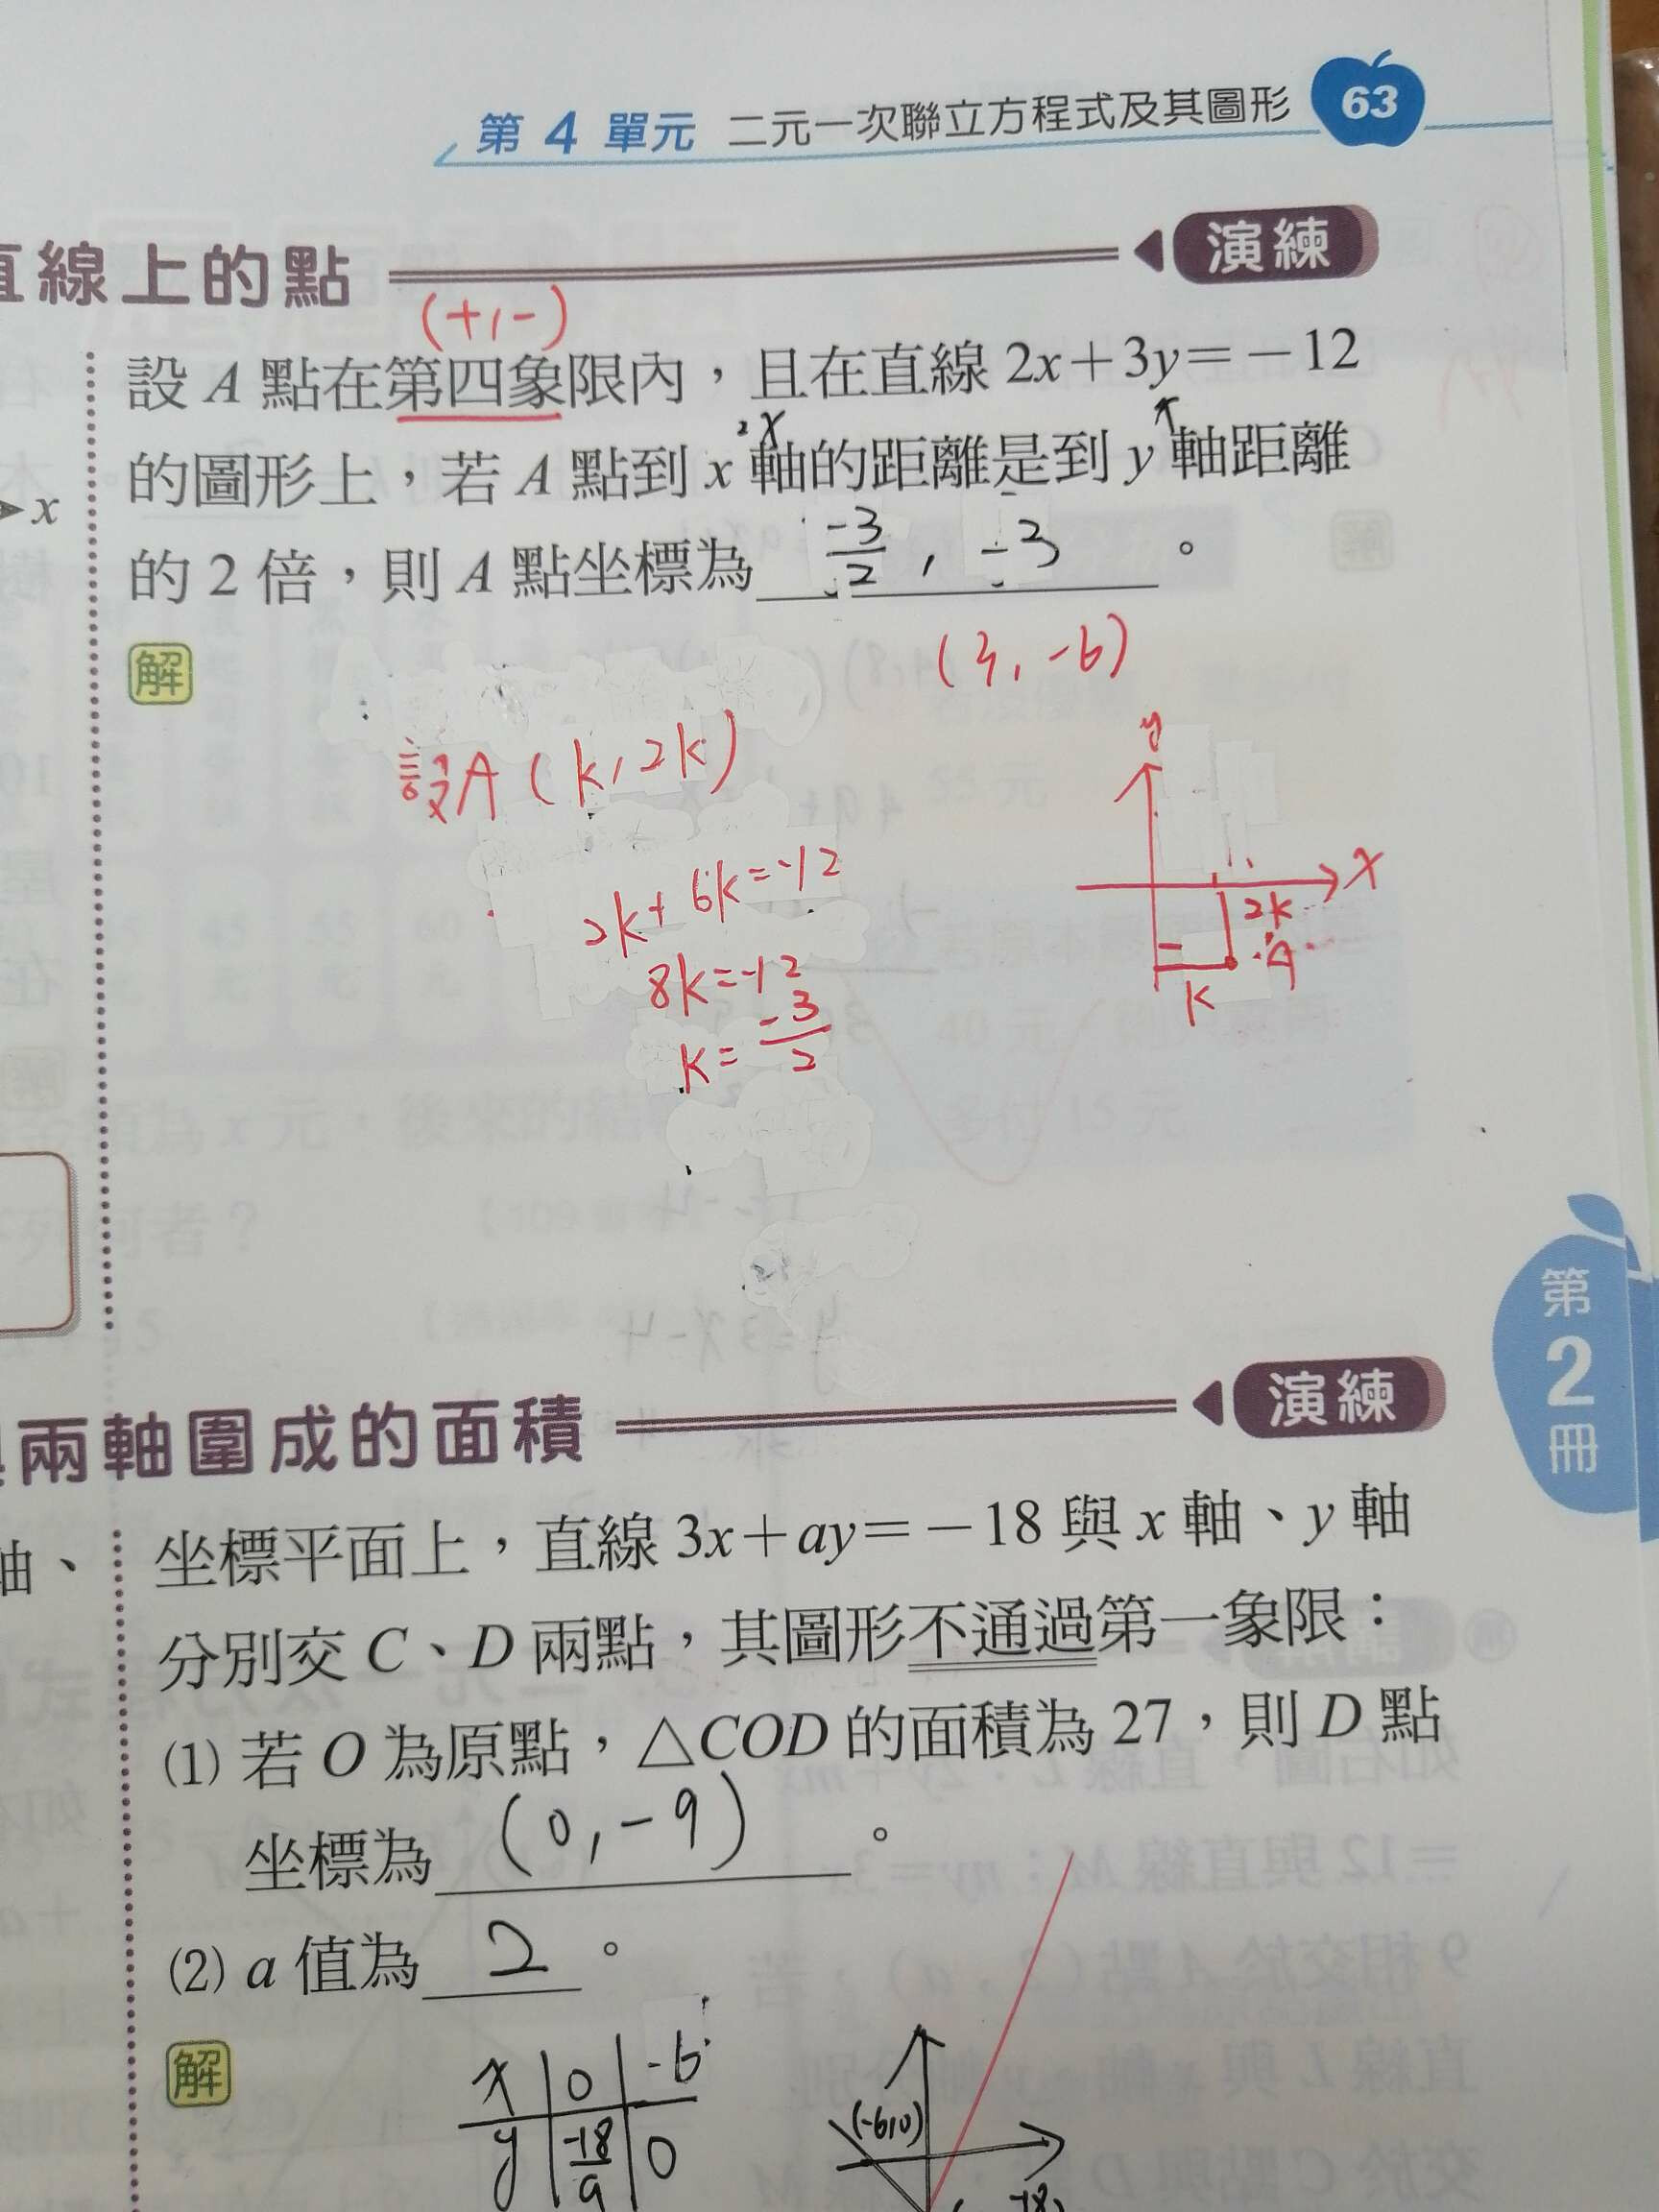 第 4 單元 二元一次聯立方程式及其圖形 63
線上的點 演練
(+,-)
設 A 點在第四象限內，且在直線 2x+3y=-12
2x
的圖形上，若 A 點到 x 軸的距離是到 y 軸距離
x
的 2 倍，則 A 點坐標為 -3/2 , -3 。
(3,-6)
解
設A(k,2k)
y
2k+6k=-12
x
2k
8k=-12
A
k
k=-3/2
第2冊
兩軸圍成的面積 演練
坐標平面上，直線 3x+ay=-18 與 x 軸、y 軸
軸、
分別交 C、D 兩點，其圖形不通過第一象限：
(1) 若 O 為原點，△COD 的面積為 27，則 D 點
坐標為 (0,-9) 。
(2) a 值為 2 。
解
x 0 -6
y -18/a 0
(-6,0)